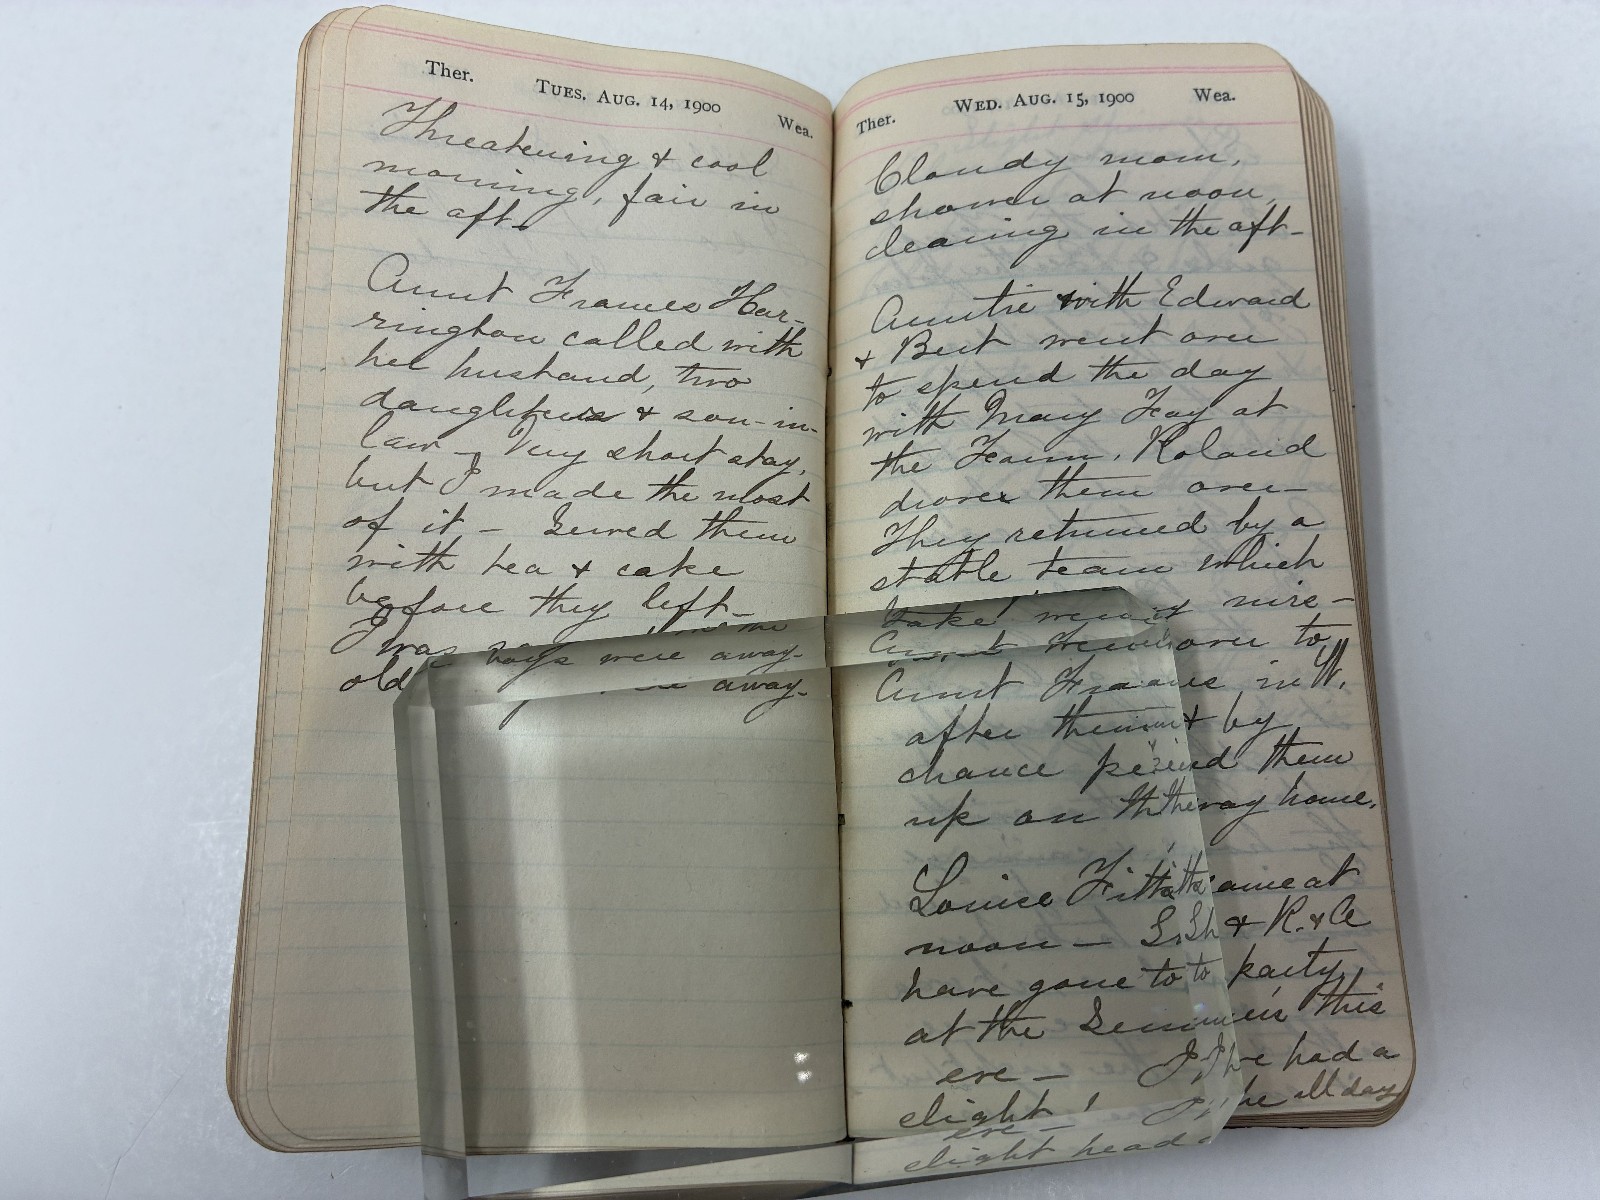 Ther. TUES. AUG. 14, 1900 Wea.
Threatening & cool
morning, fair in
the aft-
Aunt Frances Har-
rington called with
her husband, two
daughters & son-in-
law - Very short stay,
but I made the most
of it - Served them
with tea & cake
before they left-
I was
old boys were away-
Ther. WED. AUG. 15, 1900 Wea.
Cloudy morn,
shower at noon,
clearing in the aft-
Auntie with Edward
& Bert went over
to spend the day
with Mary Fay at
the Farm. Roland
drove them over-
They returned by a
stable team which
nire-
over to
Aunt Frances in W.
after them & by
chance picked them
up on the way home.
Louise Fitts came at
noon - & R. & A
have gone to party
at the this
eve - I've had a
slight headache all day